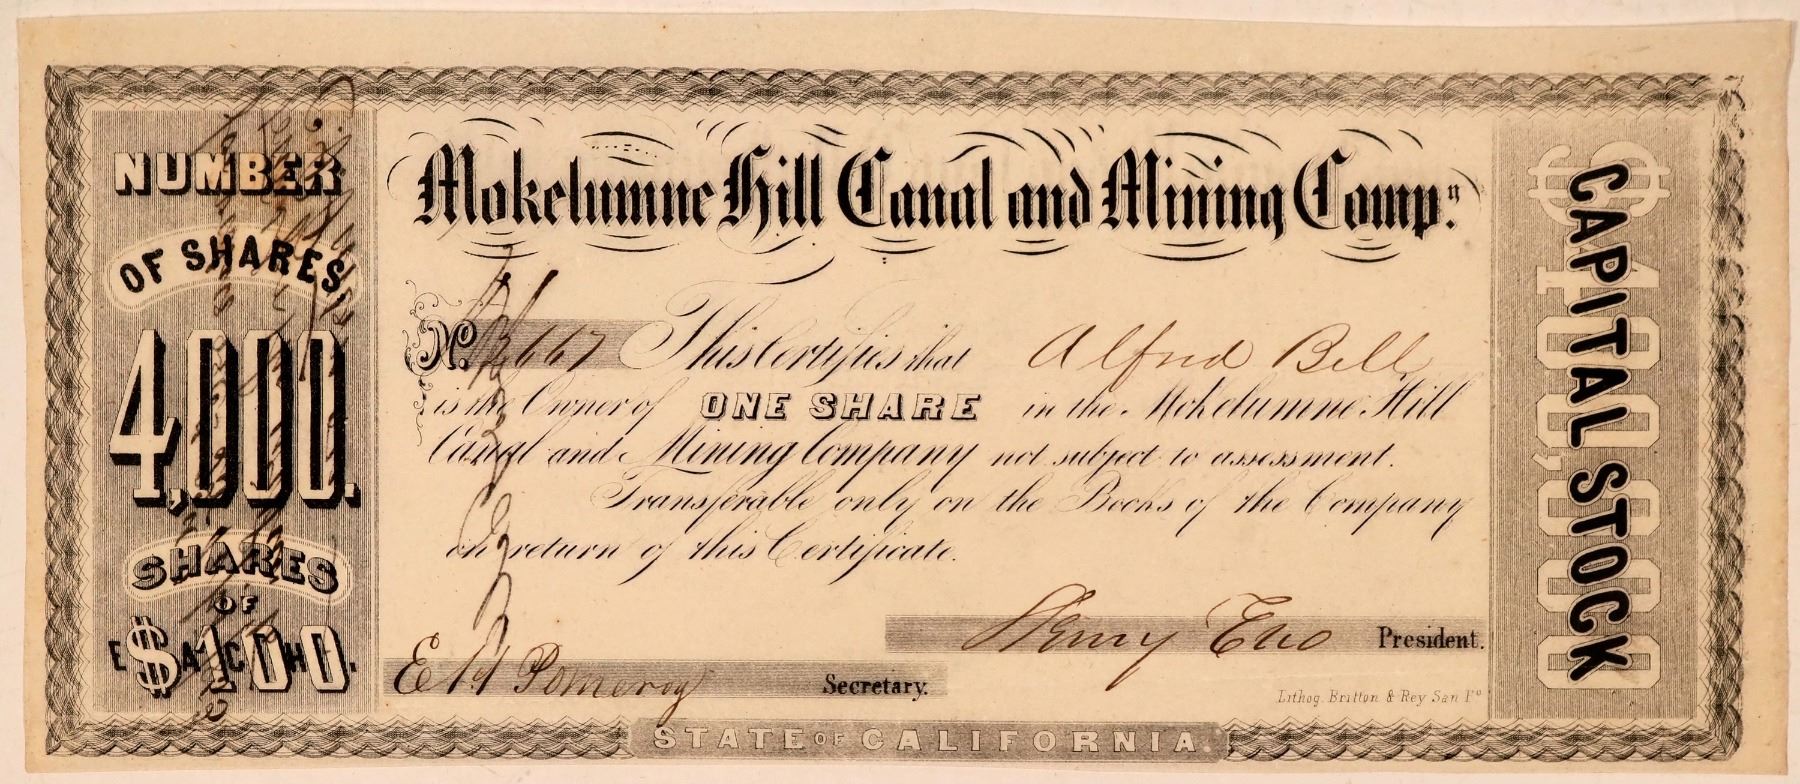 NUMBER
OF SHARES,
4,000.
SHARES
OF
$100.
EACH
Mokelumne Hill Canal and Mining Compy.
No. 667 This Certifies that Alfred Bell
is the Owner of ONE SHARE in the Mokelumne Hill
Canal and Mining Company not subject to assessment.
Transferable only on the Books of the Company
on return of this Certificate.
Henry Eno President.
Pomeroy Secretary.
Lithog. Britton & Rey San Fo.
STATE OF CALIFORNIA.
CAPITAL STOCK
$400,000